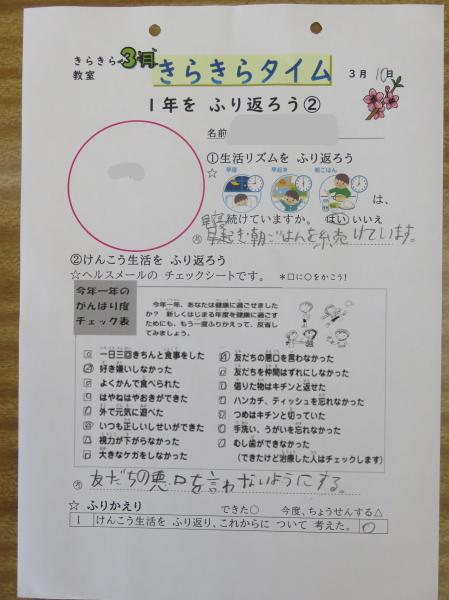 きらきら
教室
3月
きらきらタイム
3月10日
1年を ふり返ろう②
名前
①生活リズムを ふり返ろう
☆
早寝 早起き 朝ごはん
は、
続けていますか。 はい いいえ
早起き朝ごはんを続けています。
②けんこう生活を ふり返ろう
☆ヘルスメールの チェックシートです。 *口に○をかこう!
今年一年の
がんばり度
チェック表
今年一年、あなたは健康に過ごせました
か? 新しくはじまる年度を健康に過ごす
ためにも、もう一度ふりかえって、反省
してみましょう。
一日三回きちんと食事をした
好き嫌いしなかった
よくかんで食べられた
はやねはやおきができた
外で元気に遊べた
いつも正しいしせいができた
視力が下がらなかった
大きなケガをしなかった
友だちの悪口を言わなかった
友だちを仲間はずれにしなかった
借りた物はキチンと返せた
ハンカチ、ティッシュを忘れなかった
つめはキチンと切っていた
手洗い、うがいを忘れなかった
むし歯ができなかった
(できたけど治療した人はチェックします)
友だちの悪口を言わないようにする。
☆ ふりかえり できた○ 今度、ちょうせんする△
1 けんこう生活を ふり返り、これからに ついて 考えた。 ○